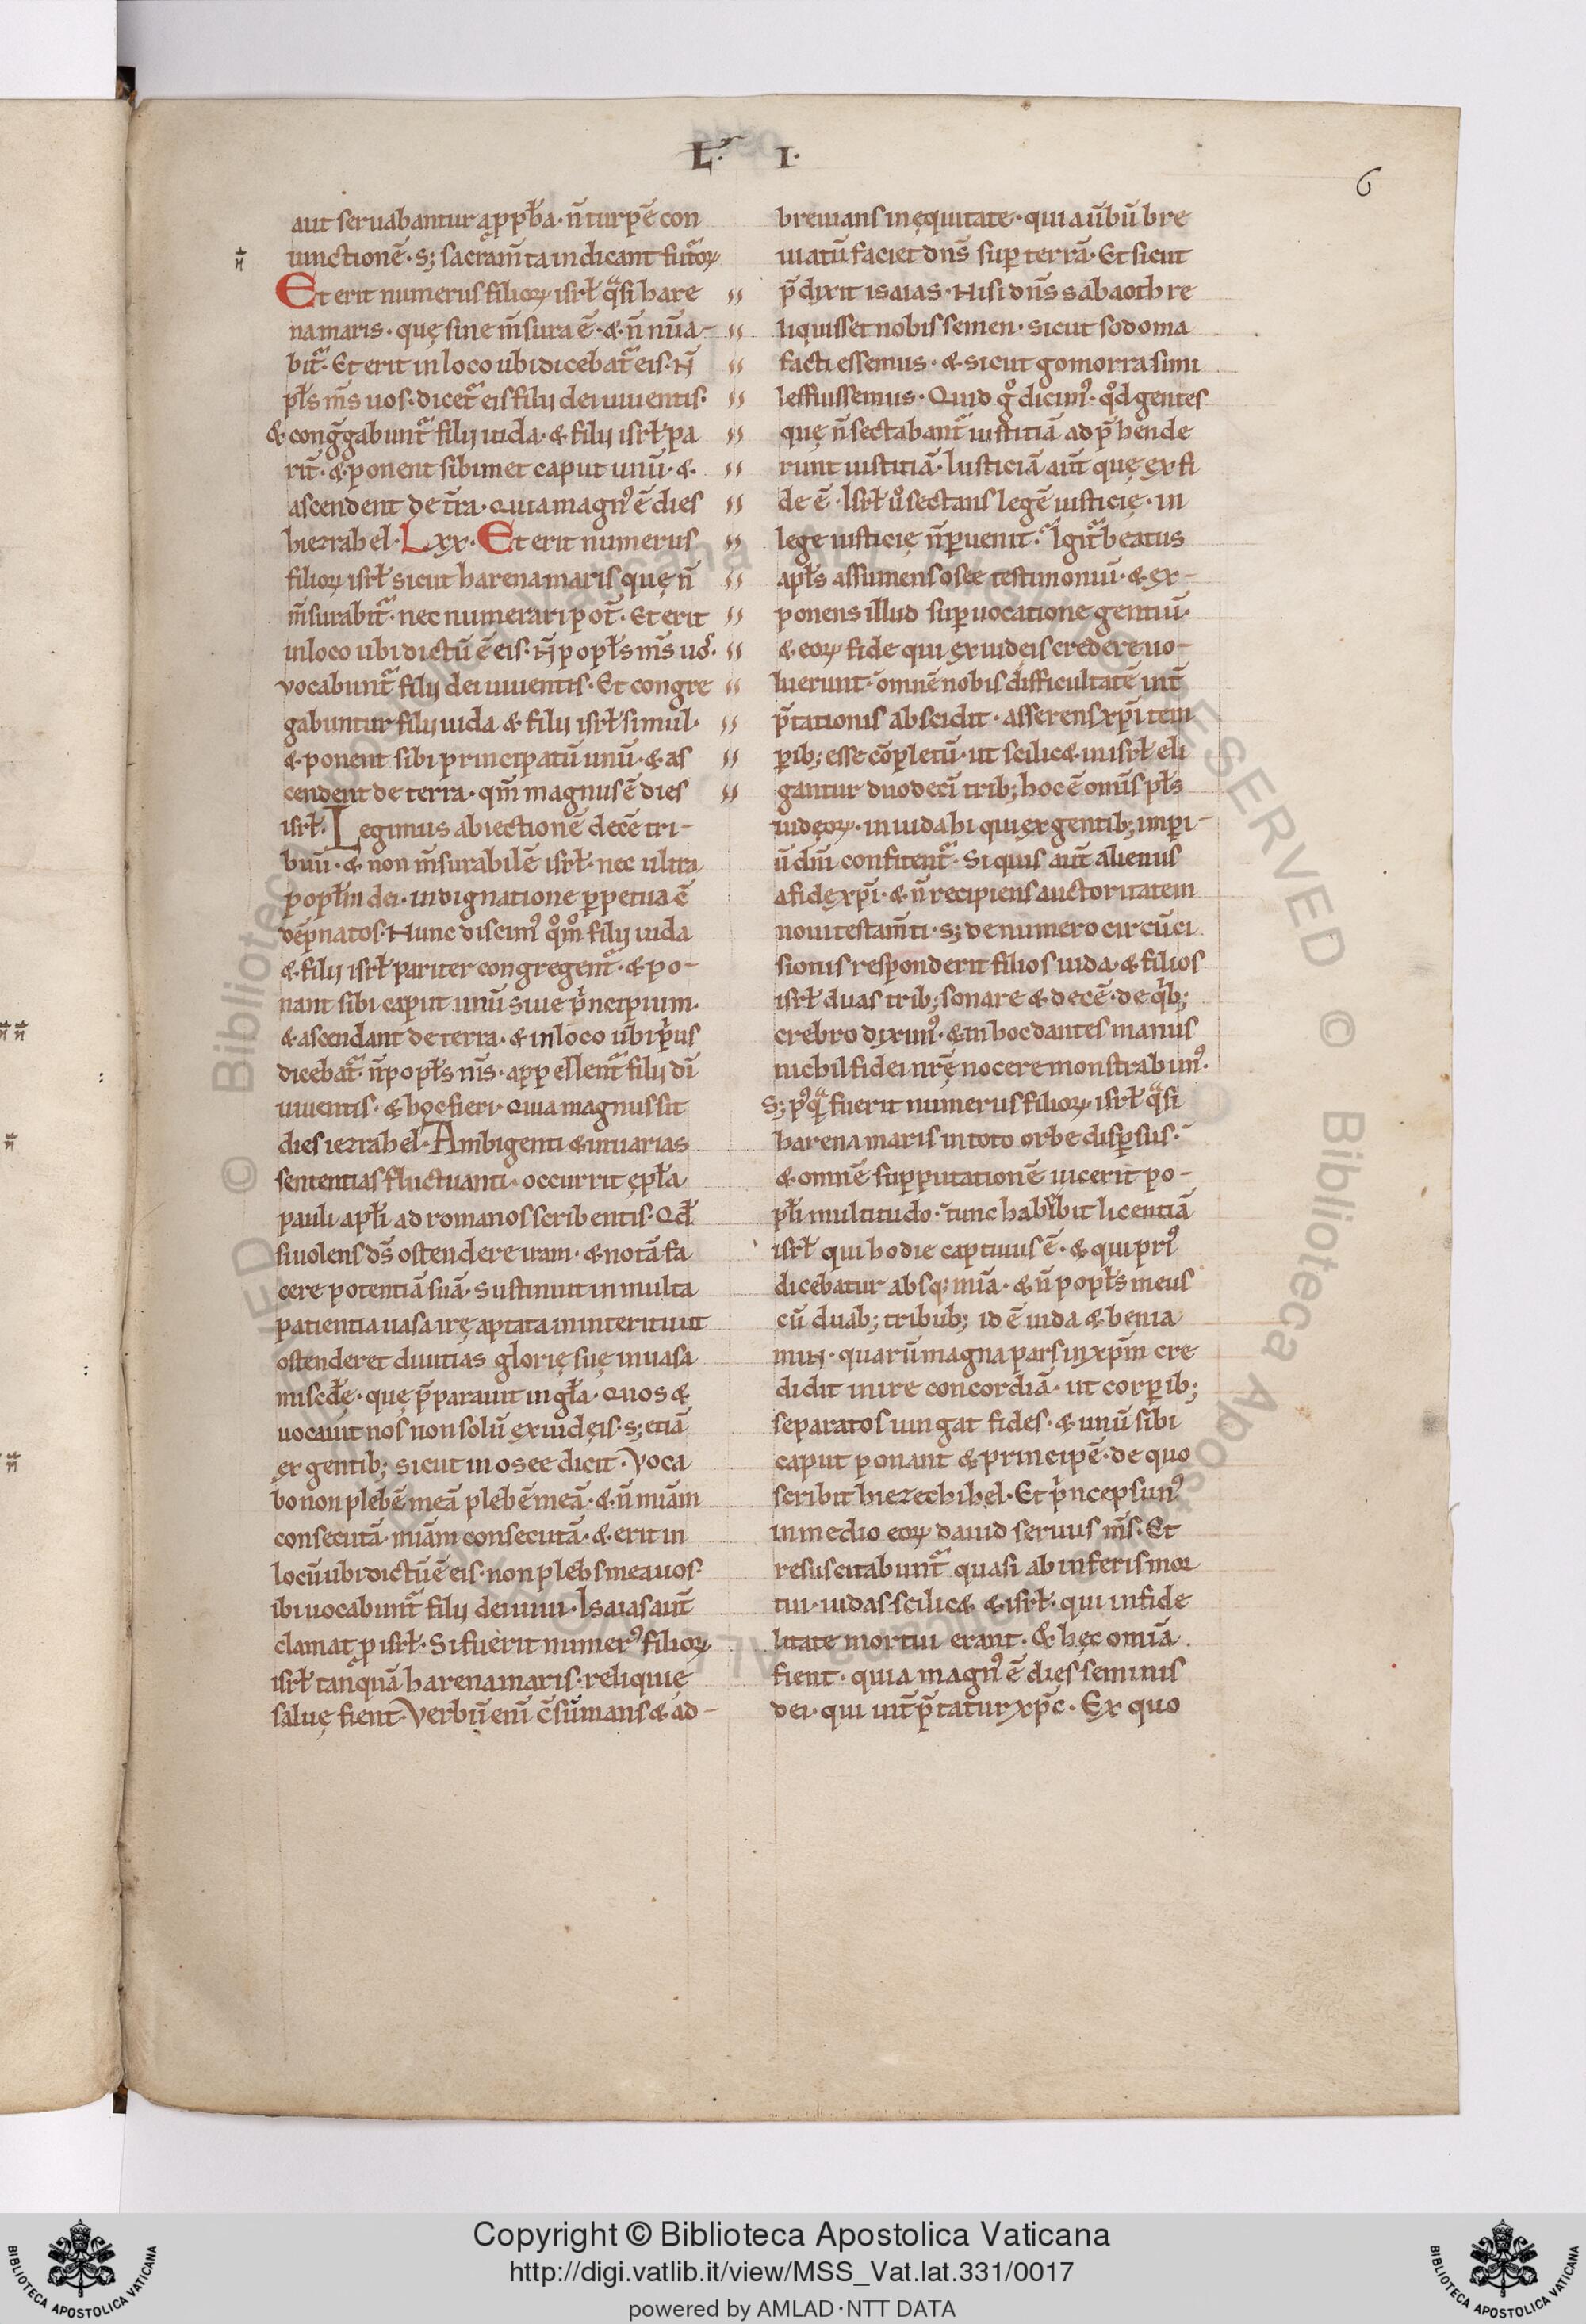 L. I.
6
aut seruabantur a ꝓpħa· n̄ turpē con
iunctionē· s; sacram̄ta indicant futoꝝ
Et erit numerus filioꝝ isrł q̈si hare
na maris· quę sine m̄sura ē· & n̄ nūa-
bit̃· Et erit in loco ubi dicebat̃ eis· N̄
płs m̄s uos· dicet̃ eis filij dei uiuentis·
& cong̃gabunt̃ filij iuda· & filij isrł pa
rit̄· & ponent sibimet caput unū· &
ascendent de t̄ra· Quia magn᾽ ē dies
hiezrahel· Lxx· Et erit numerus
filioꝝ isrł sicut harena maris quę n̄
m̄surabit̃· nec numerari pot̄· Et erit
in loco ubi dictū ē eis· N̄ popłs m̄s uos·
vocabunt̃ filij dei uiuentis· Et congre
gabuntur filij iuda & filij isrł simul·
& ponent sibi principatū unū· & as
cendent de terra· qm̄ magnus ē dies
isrł· Legimus abiectionē decē tri-
buū· & non m̄surabilē isrł· nec ultra
popłm dei· indignatione ꝑpetua ē
dēpnatos· Nunc discim᾽ qͦmͦ filij iuda
& filij isrł pariter congregent̃· & po-
nant sibi caput unū siue pⁱncipium·
& ascendant de terra· & in loco ubi pⁱus
dicebat̃· n̄ popłs m̄s· appellent̃ filij dī
uiuentis· & hoc fieri· Quia magnus sit
dies iezrahel· Ambigenti & in uarias
sententias fluctuanti· occurrit ępła
pauli apłi ad romanos scribentis· Qđ
si uolens ds̄ ostendere iram· & notā fa
cere potentiā suā· sustinuit in multa
patientia uasa irę aptata in interitū ut
ostenderet diuitias glorię suę in uasa
miscđę· quę p̄parauit in gła· Quos &
uocauit nos non solū ex iudęis· s; etiā
ex gentib; sicut in osee dicit· Voca
bo non plebē meā plebē meā· & n̄ miām
consecutā· miām consecutā· & erit in
locū ubi dictū ē eis· non plebs mea uos·
ibi uocabunt̃ filij dei uiui· Isaias aut̄
clamat p isrł· Si fuerit numer᾽ filioꝝ
isrł tanquā harena maris· reliquię
saluę fient· Verbū enī c̄sūmans & ad-
breuians in ęquitate· quia ūbū bre
uiatū faciet dn̄s suꝑ terrā· Et sicut
p̄dixit isaias· Nisi dn̄s sabaoth re
liquisset nobis semen· sicut sodoma
facti essemus· & sicut gomorra simi
les fuissemus· Quid gͦ dicim᾽· qͦd gentes
quę n̄ sectabant̃ iustitiā adp̄hende
runt iustitiā· Iusticiā aut̄ quę ex fi
de ē· Isrł uͦ sectans legē iusticię· in
lege iusticię n̄ ꝑuenit· Igit̃ beatus
apłs assumens osee testimoniū· & ex-
ponens illud suꝑ uocatione gentiū·
& eoꝝ fide qui ex iudęis credere uo-
luerunt· omnē nobis difficultatē int̄
p̄tationis abscidit· asserens xp̄i tem
ꝑib; esse cōpletū· ut scilic& in isrł eli
gantur duodecī trib; hoc ē omīs płs
iudęoꝝ· in iuda hi qui ex gentib; imꝑi-
ū dn̄i confitent̃· Si quis aut̄ alienus
a fide xp̄i· & n̄ recipiens auctoritatem
noui testam̄ti· s; de numero circūci
sionis responderit filios iuda· & filios
isrł duas trib; sonare & decē· de qⁱb;
crebro dixim᾽· & in hoc dantes manus
nichil fidei nr̄ę nocere monstrabim᾽·
S; p᾽q̃ fuerit numerus filioꝝ isrł q̈si
harena maris in toto orbe disꝑsus·
& omnē supputationē uicerit po-
płi multitudo· tunc habebit licentiā
isrł qui hodie captiuus ē· & qui pri᾽
dicebatur absq; mīa· & n̄ popłs meus
cū duab; tribub; id ē iuda & benia
miN· quarū magna pars in xp̄m cre
didit inire concordiā· ut corꝑib;
separatos iungat fides· & unū sibi
caput ponant & principē· de quo
scribit hiezechihel· Et pⁱnceps un᾽
in medio eoꝝ dauid seruus m̄s· Et
resuscitabunt̃ quasi ab inferis mor
tui· iudas scilic& & isrł· qui infide
litate mortui erant· & hęc omīa
fient· quia magn᾽ ē dies seminis
dei· qui int̄p̄tatur xp̄c· Ex quo
© Biblioteca Apostolica Vaticana ALL RIGHTS RESERVED
Copyright © Biblioteca Apostolica Vaticana
http://digi.vatlib.it/view/MSS_Vat.lat.331/0017
powered by AMLAD·NTT DATA
BIBLIOTECA APOSTOLICA VATICANA
BIBLIOTECA APOSTOLICA VATICANA